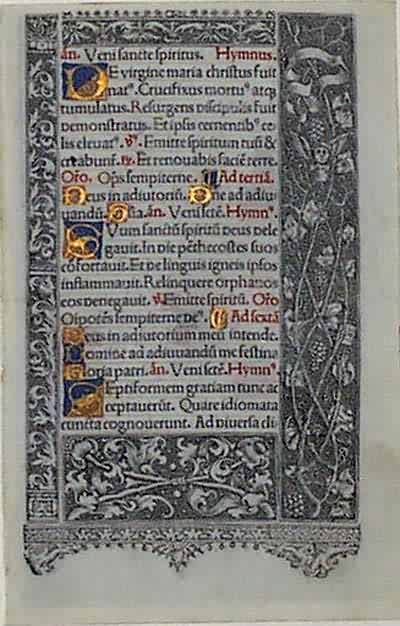 ān. Veni sancte spiritus. Hymnus.
DE virgine maria christus fuit
natꝰ. Crucifixus mortuꝰ atqꝫ
tumulatus. Resurgens discipulis fuit
demonstratus. Et ipsis cernentibꝰ ce
lis eleuatꝰ. ℣. Emitte spiritum tuū &
creabunt̄. ℟. Et renouabis faciē terre.
Oro. Ops sempiterne. Ad tertiā.
Deus in adiutoriū. Dne ad adiu
uandū. Gl̄ia. ān. Veni sctē. Hymnꝰ.
SVum sanctū spiritū deus dele
gauit. In die pēthecostes suos
cōfortauit. Et de linguis igneis ipsos
inflammauit. Relinquere orphanos
eos denegauit. ℣. Emitte spiritū. Oro
Oīpotēs sempiterne deꝰ. Ad sextā
Deus in adiutorium meū intende.
Domine ad adiuuandū me festina
Gloria patri. ān. Veni sctē. Hymnꝰ.
SEptiformem gratiam tunc ac
ceptauerūt. Quare idiomata
cuncta cognouerunt. Ad diuersa cli